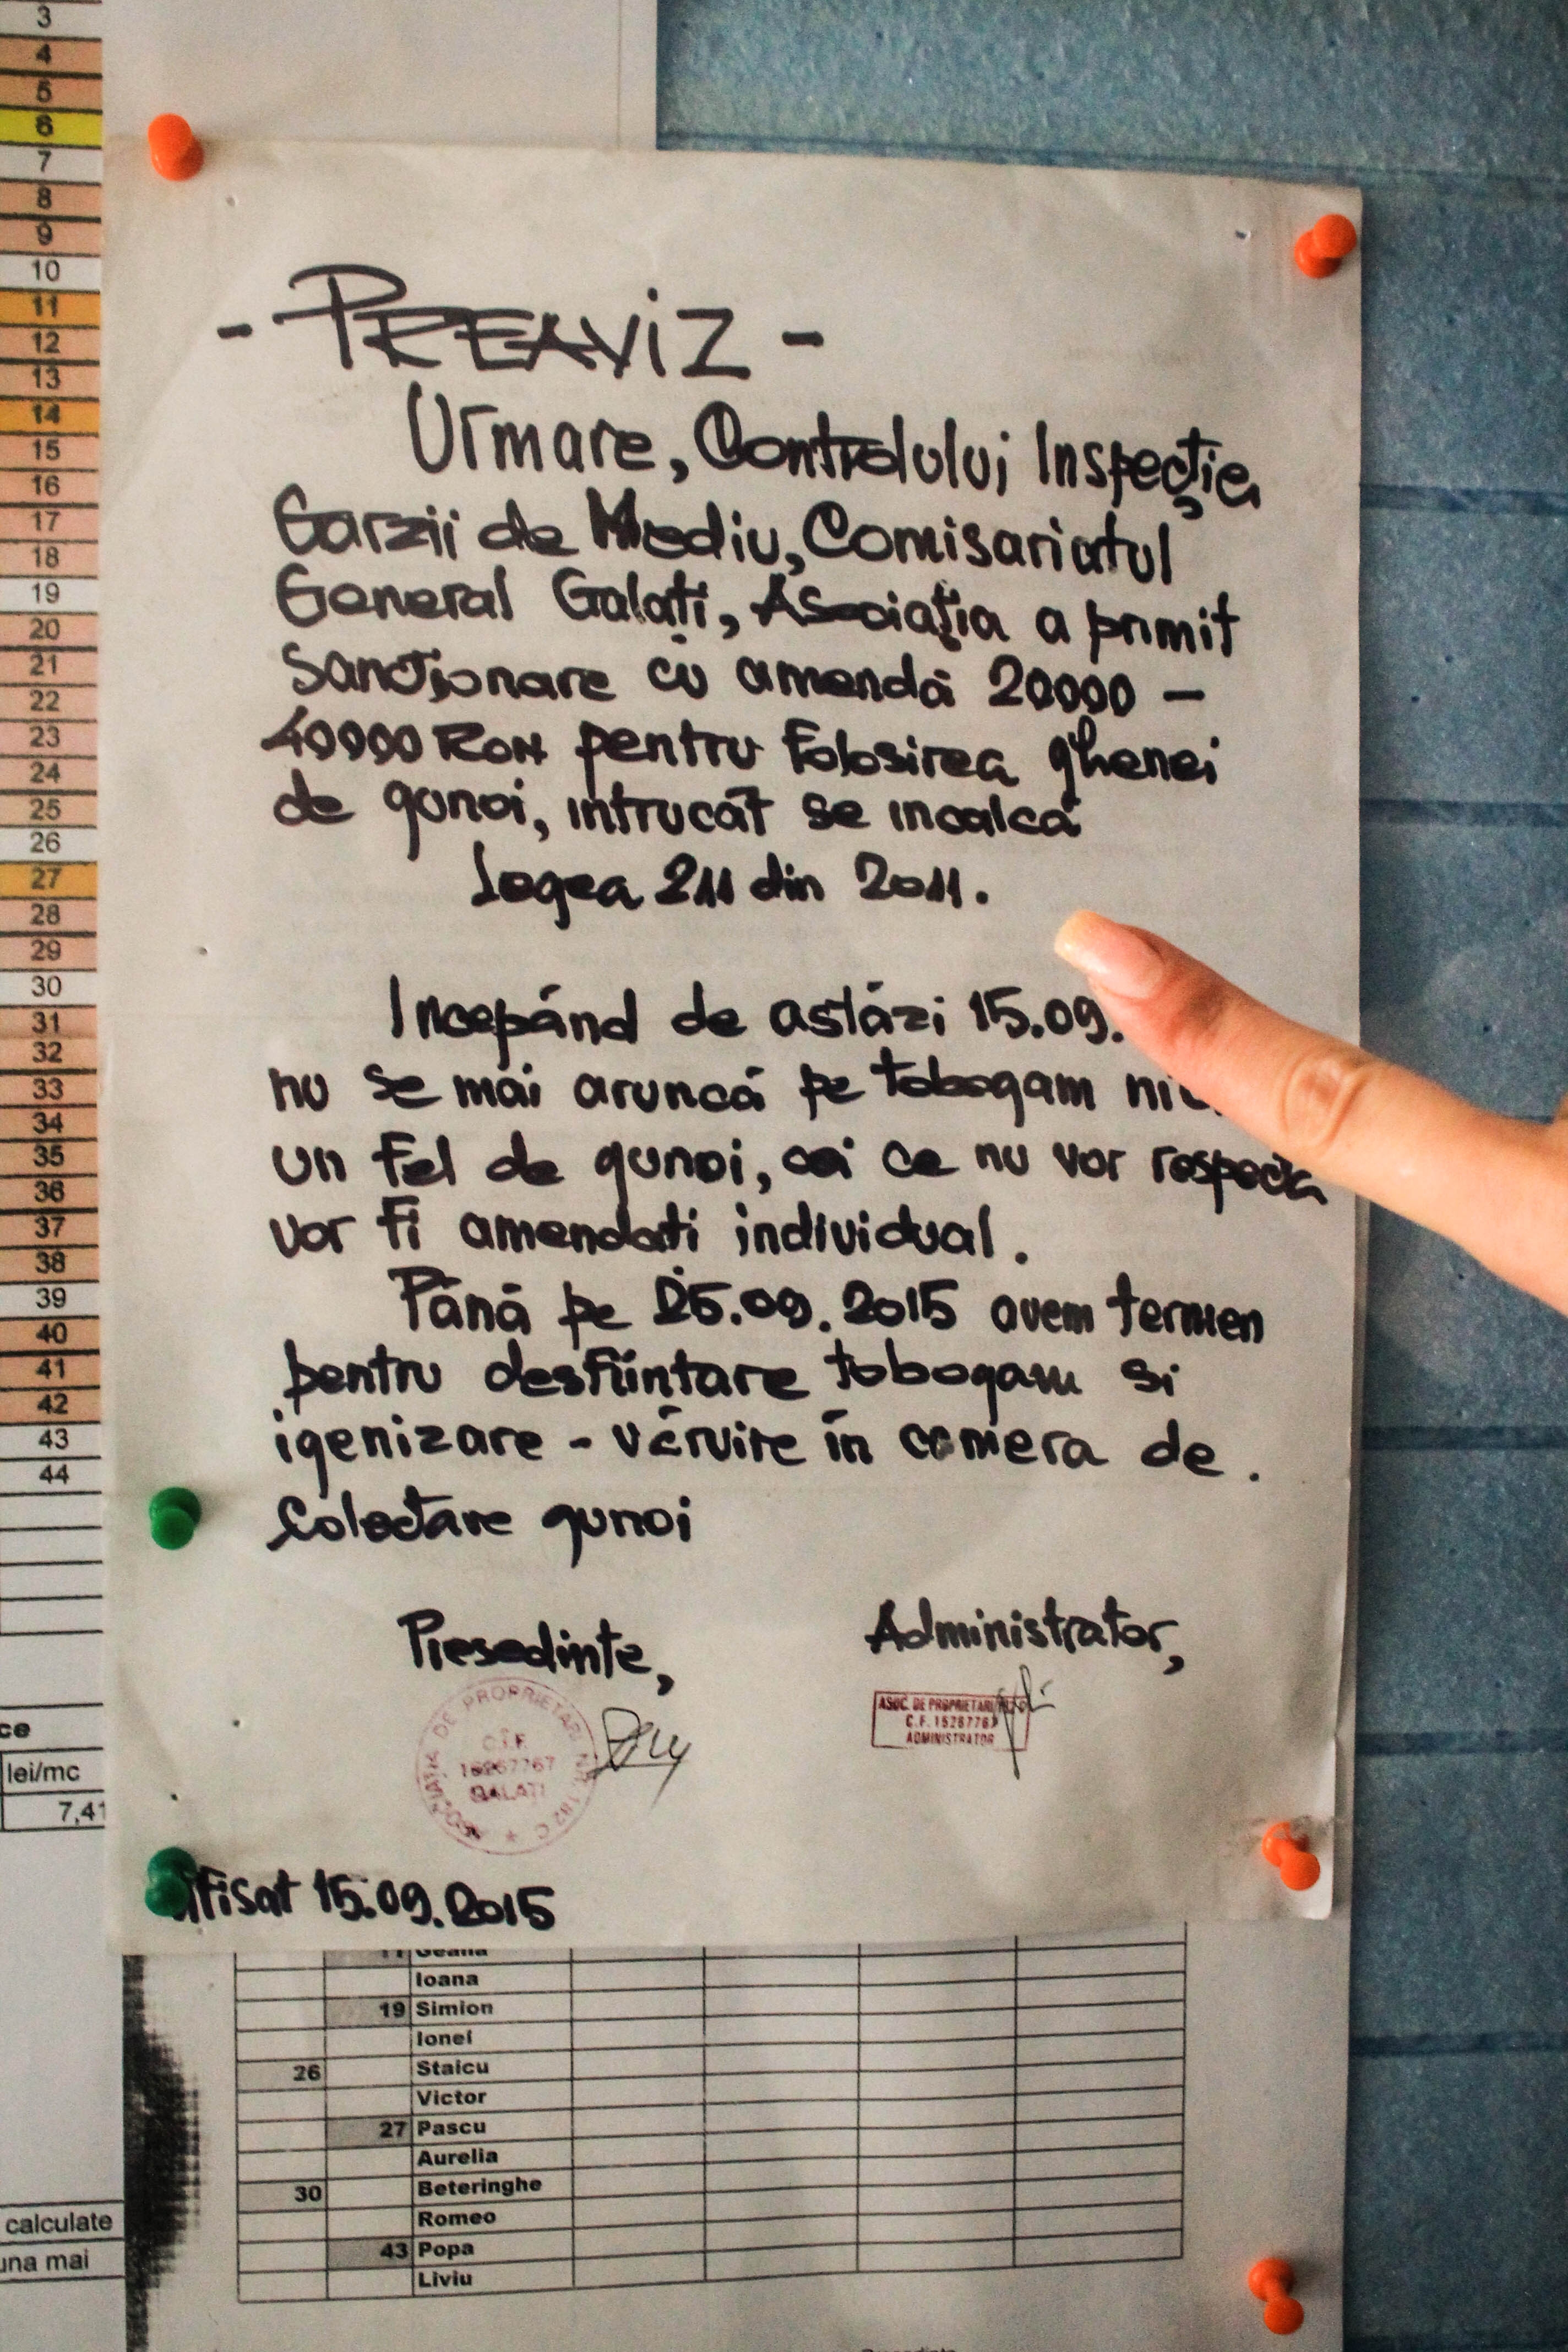 3
4
5
6
7
8
9
10
11
12
13
14
15
16
17
18
19
20
21
22
23
24
25
26
27
28
29
30
31
32
33
34
35
36
37
38
39
40
41
42
43
44
ce
lei/mc
7,41
calculate
una mai
- PREAVIZ -
Urmare, Controlului Inspecției
Garzii de Mediu, Comisariatul
General Galați, Asociația a primit
Sancționare cu amendă 20000 -
40000 RON pentru folosirea ghenei
de gunoi, intrucât se incalcă
Legea 211 din 2011.
Incepând de astăzi 15.09.
nu se mai aruncă pe tobogam
un fel de gunoi, cei ce nu vor respecta
vor fi amendati individual.
Până pe 25.09.2015 avem termen
pentru desfiintare tobogam si
igenizare - văruire în camera de.
Colectare gunoi
Presedinte,
Administrator,
ASOCIAȚIA DE PROPRIETARI NR. 182 C
C.I.F.
15267767
GALAȚI
ASOC. DE PROPRIETARI
C.F. 15267767
ADMINISTRATOR
Afisat 15.09.2015
Ioana
19 Simion
Ionel
26 Staicu
Victor
27 Pascu
Aurelia
30 Beteringhe
Romeo
43 Popa
Liviu